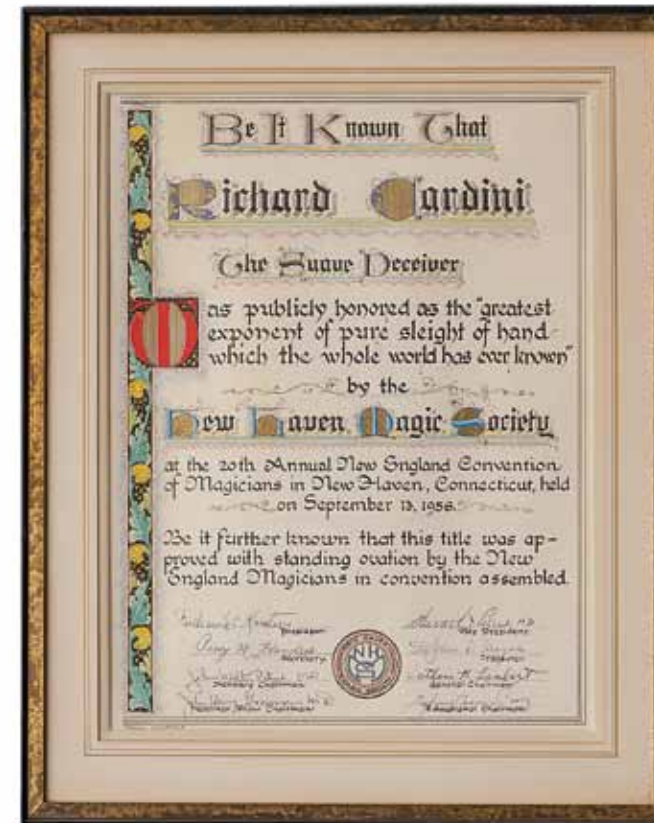 Be It Known That
Richard Cardini
The Suave Deceiver
Was publicly honored as the "greatest
exponent of pure sleight of hand
which the whole world has ever known"
by the
New Haven Magic Society
at the 20th Annual New England Convention
of Magicians in New Haven, Connecticut, held
on September 13, 1958.
Be it further known that this title was ap-
proved with standing ovation by the New
England Magicians in convention assembled.
President
Vice President
Secretary
Treasurer
General Chairman